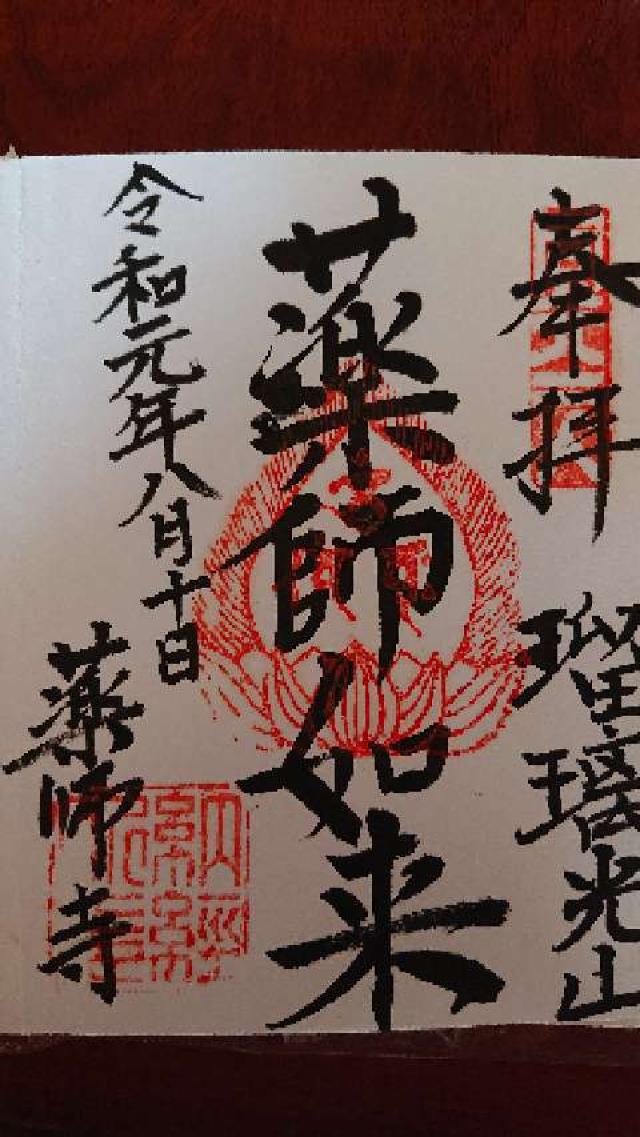 奉拝
瑠璃光山
薬師如来
令和元年八月十日
薬師寺